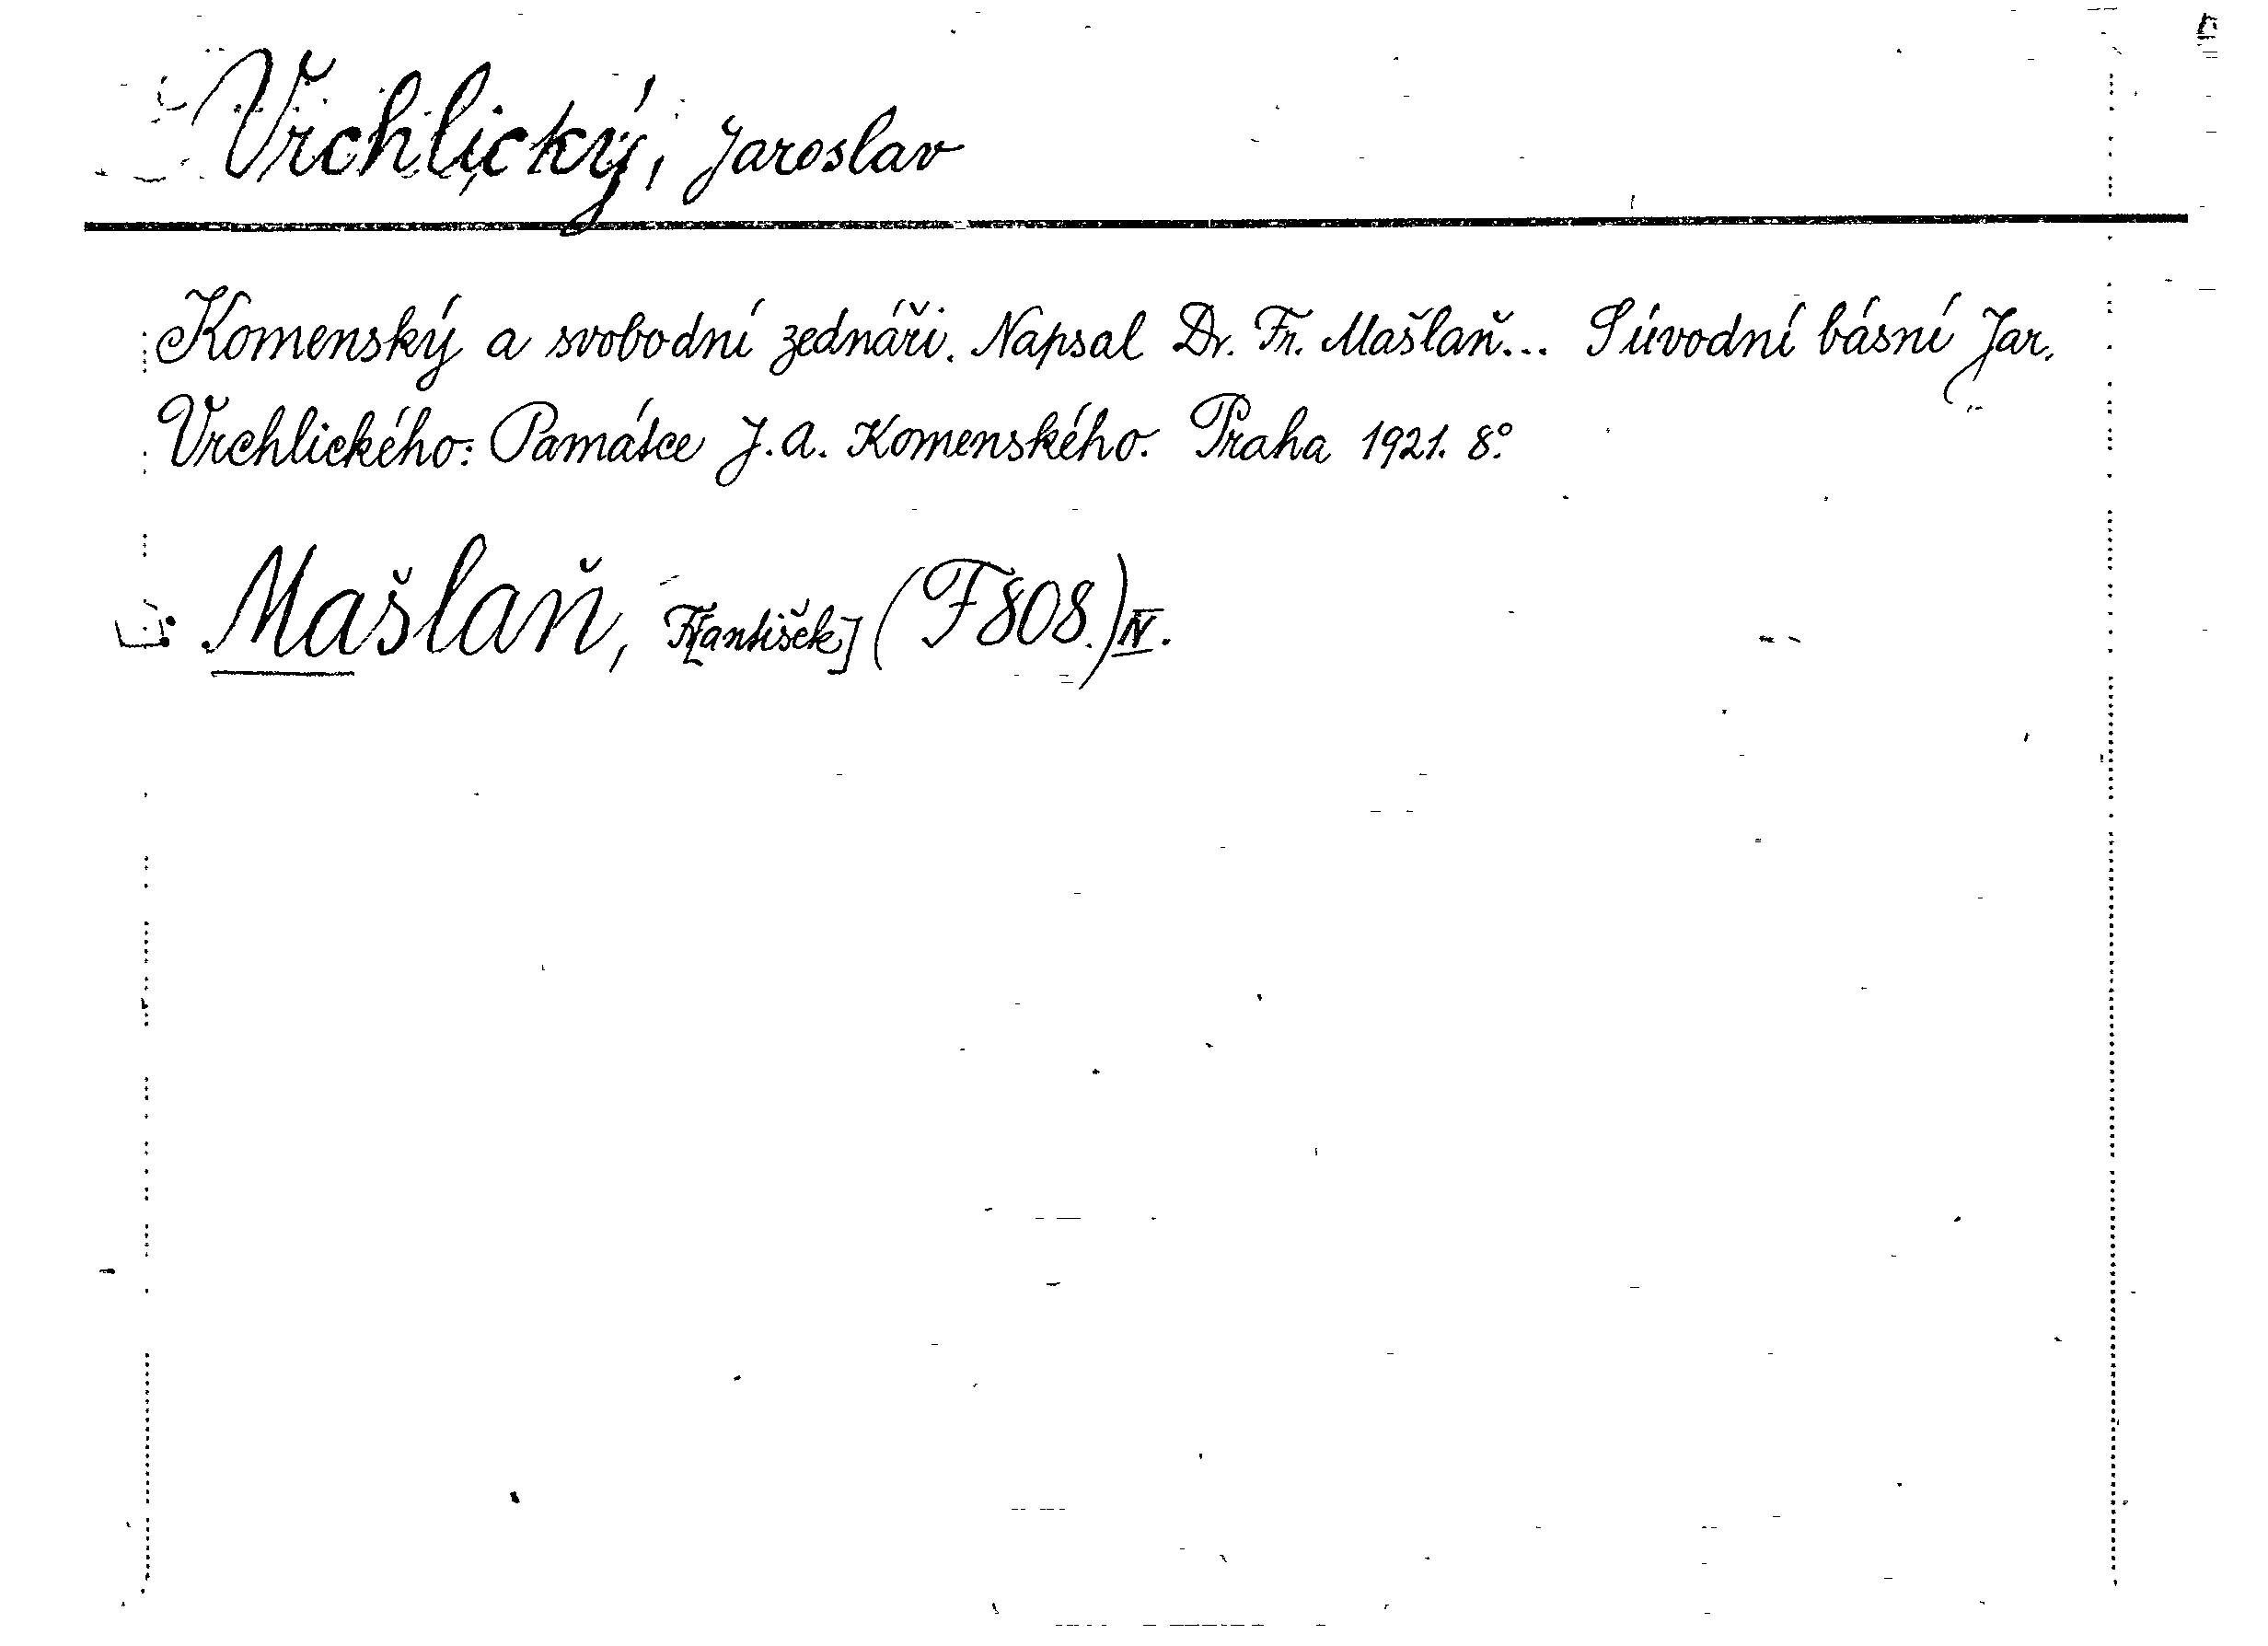 Vrchlický, Jaroslav
Komenský a svobodní zednáři. Napsal Dr. Fr. Mašlaň... S úvodní básní Jar.
Vrchlického: Památce J. A. Komenského. Praha 1921. 8°.
Mašlaň, Fr[antišek] (F 808.) IV.